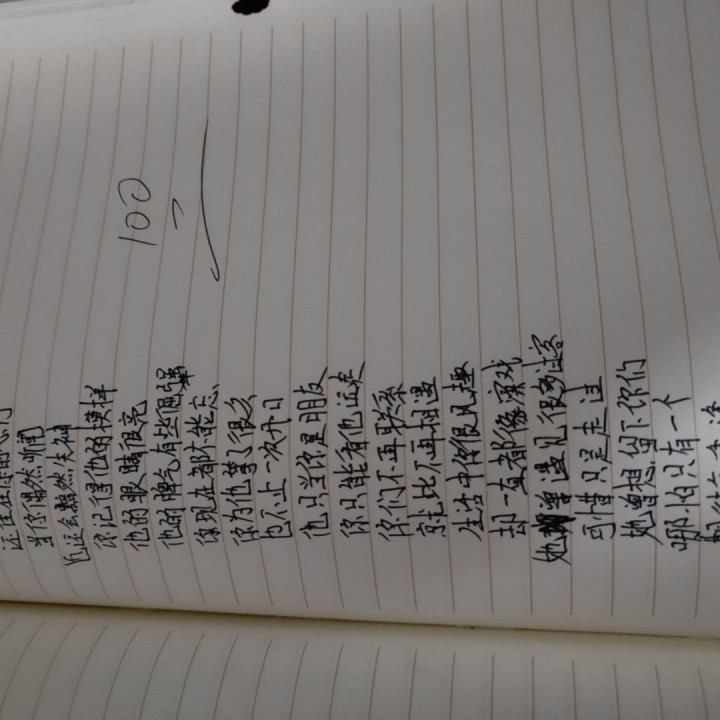 还住在你的心门
当你偶然听闻
也还会黯然失神
你记得他的模样
他的眼睛很亮
他的脾气有些倔强
你现在都不能忘
你为他掌了很久
也不止一次开口
他只当你是朋友
你只能看他远走
你们不再联系
就也不再相遇
生活中传很风趣
却一直都像演戏
她曾遇见很多过客
可惜只是走过
她曾想留下你们
哪怕只有一个
100